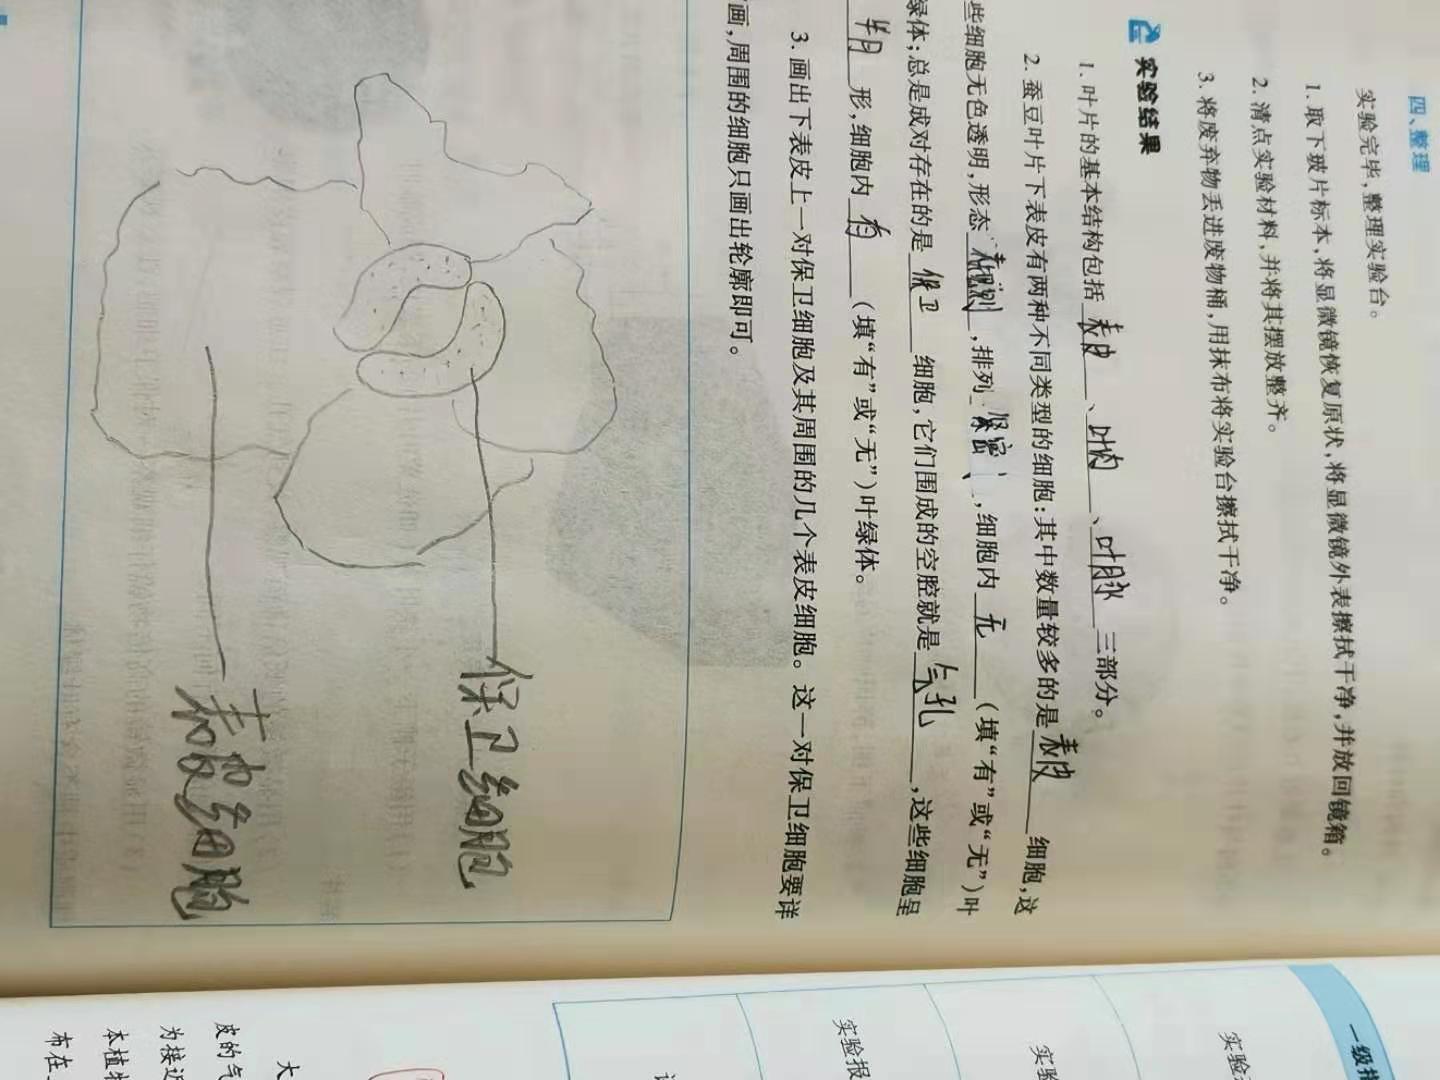 四、整理
实验完毕,整理实验台。
1. 取下玻片标本,将显微镜恢复原状,将显微镜外表擦拭干净,并放回镜箱。
2. 清点实验材料,并将其摆放整齐。
3. 将废弃物丢进废物桶,用抹布将实验台擦拭干净。
实验结果
1. 叶片的基本结构包括 表皮 、 叶肉 、 叶脉 三部分。
2. 蚕豆叶片下表皮有两种不同类型的细胞:其中数量较多的是 表皮 细胞,这
些细胞无色透明,形态 ,排列 紧密 ,细胞内 无 (填“有”或“无”)叶
绿体;总是成对存在的是 保卫 细胞,它们围成的空腔就是 气孔 ,这些细胞呈
半月 形,细胞内 有 (填“有”或“无”)叶绿体。
3. 画出下表皮上一对保卫细胞及其周围的几个表皮细胞。这一对保卫细胞要详
画,周围的细胞只画出轮廓即可。
保卫细胞
表皮细胞
一级指
实验
实验
实验报
大
皮的气
为接近
本植物
布在